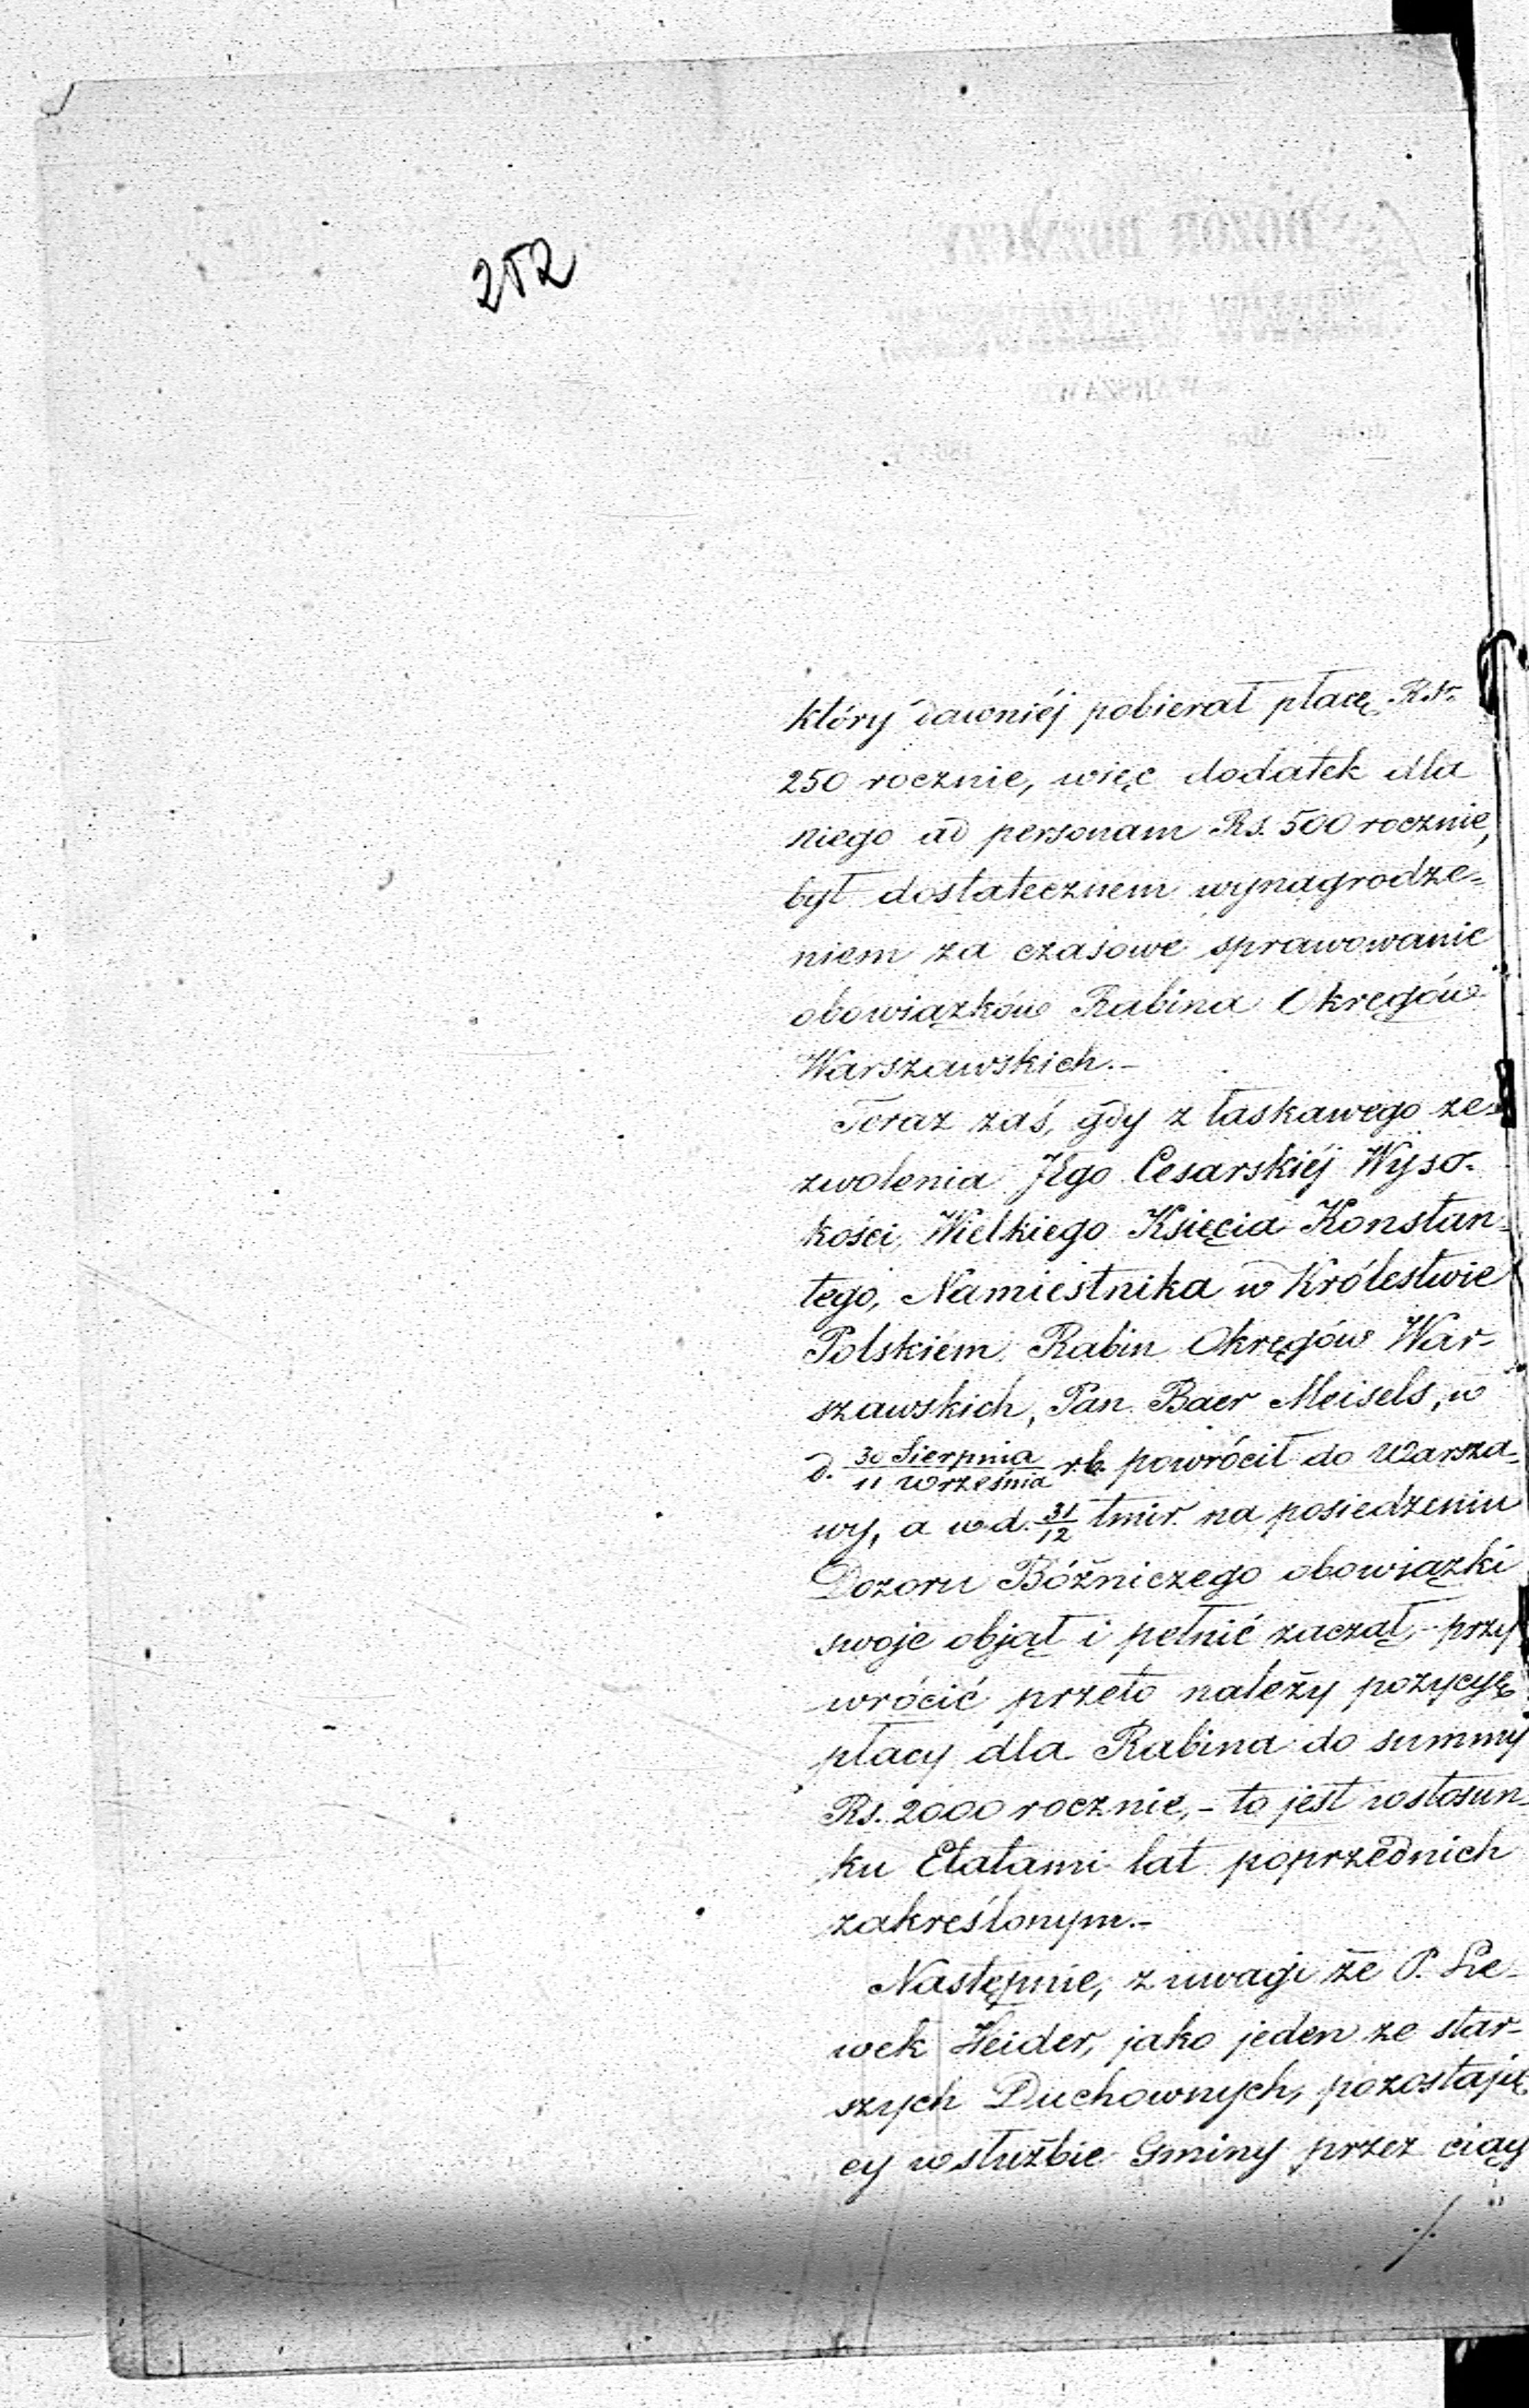 252
który dawniéj pobierał płacę Rs.
250 rocznie, więc dodatek dla
niego ad personam Rs. 500 rocznie,
był dostatecznem wynagrodze=
niem za czasowe sprawowanie
obowiązków Rabina Okręgów
Warszawskich.-
Teraz zaś, gdy z łaskawego ze=
zwolenia JEgo Cesarskiéj Wyso-
kości, Wielkiego Księcia Konstan-
tego, Namiestnika w Królestwie
Polskiém, Rabin Okręgów War-
szawskich, Pan Baer Meisels, w
d. 30 Sierpnia/11 Września r.b. powrócił do Warsza-
wy, a w d. 31/12 tmir. na posiedzeniu
Dozoru Bóżniczego obowiązki
swoje objął i pełnić zaczął, - przy
wrócić przeto należy pozycyę
płacy dla Rabina do summy
Rs. 2000 rocznie, - to jest w stosun-
ku Etatami lat poprzednich
zakreślonym.-
Następnie, z uwagi że P. Le-
wek Heider, jako jeden ze star-
szych Duchownych, pozostają
cy w służbie Gminy przez ciąg
./.
DOZÓR BÓŻNICZY
WARSZAW